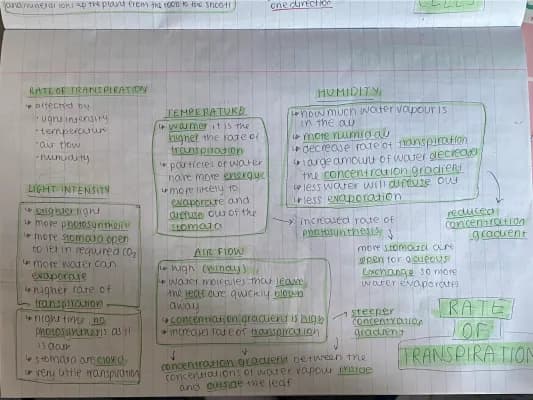 and mineral ions up the plant from the roots to the shoot)
one direction
CELLS
RATE OF TRANSPIRATION
→ affected by
· light intensity
· temperature
· air flow
· humidity
LIGHT INTENSITY
→ brighter light
→ more photosynthesis
→ more stomata open
to let in required CO2
→ more water can
evaporate
→ higher rate of
transpiration
→ night time no
photosynthesis as it
is dark
→ stomata are closed
→ very little transpiration
TEMPERATURE
→ warmer it is the
higher the rate of
transpiration
→ particles of water
have more energy
→ more likely to
evaporate and
diffuse out of the
stomata
→ increased rate of
photosynthesis
more stomata are
open for gaseous
exchange so more
water evaporates
HUMIDITY
→ how much water vapour is
in the air
→ more humid air
→ decrease rate of transpiration
→ large amount of water decrease
the concentration gradient
→ less water will diffuse out
→ less evaporation
reduced
concentration
gradient
AIR FLOW
→ high (windy)
→ water molecules that leave
the leaf are quickly blown
away
→ concentration gradient is high
→ increased rate of transpiration
→ steeper
concentration
gradient
concentration gradient between the
concentrations of water vapour inside
and outside the leaf
RATE
OF
TRANSPIRATION